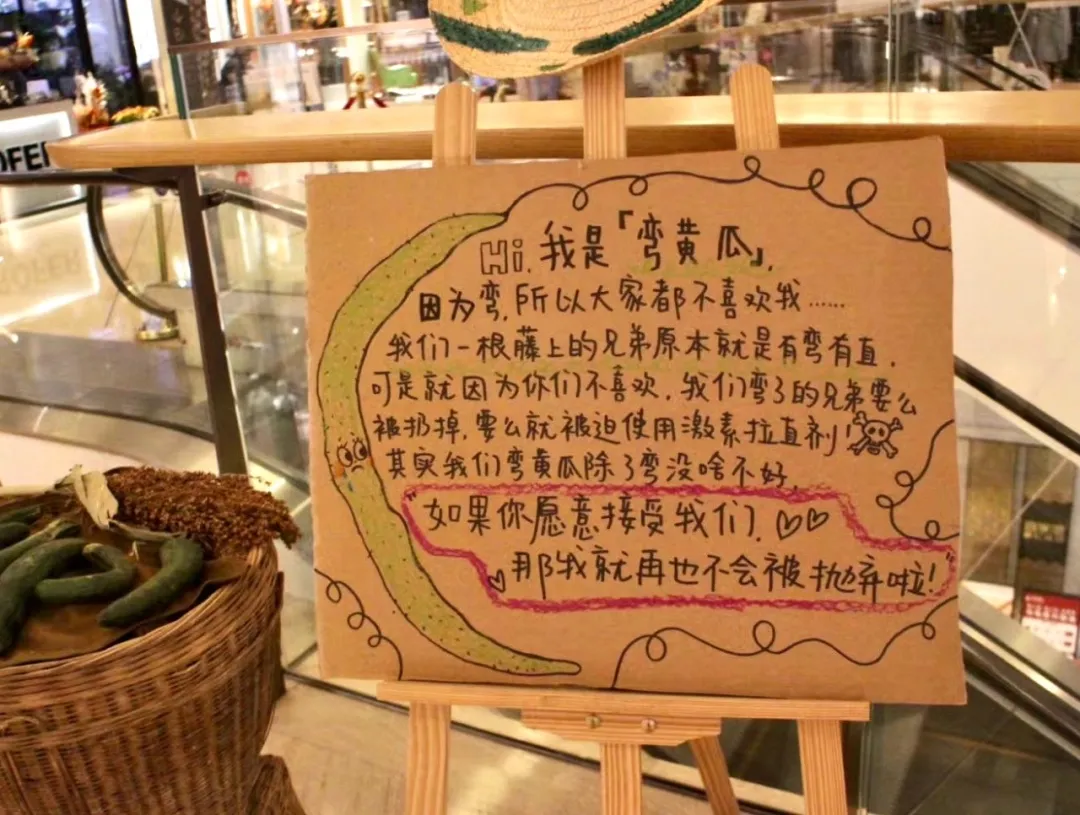 Hi, 我是「弯黄瓜」,
因为弯,所以大家都不喜欢我……
我们一根藤上的兄弟原本就是有弯有直,
可是就因为你们不喜欢,我们弯了的兄弟要么
被扔掉,要么就被迫使用激素拉直剂!
其实我们弯黄瓜除了弯没啥不好,
"如果你愿意接受我们,
那我就再也不会被抛弃啦!"